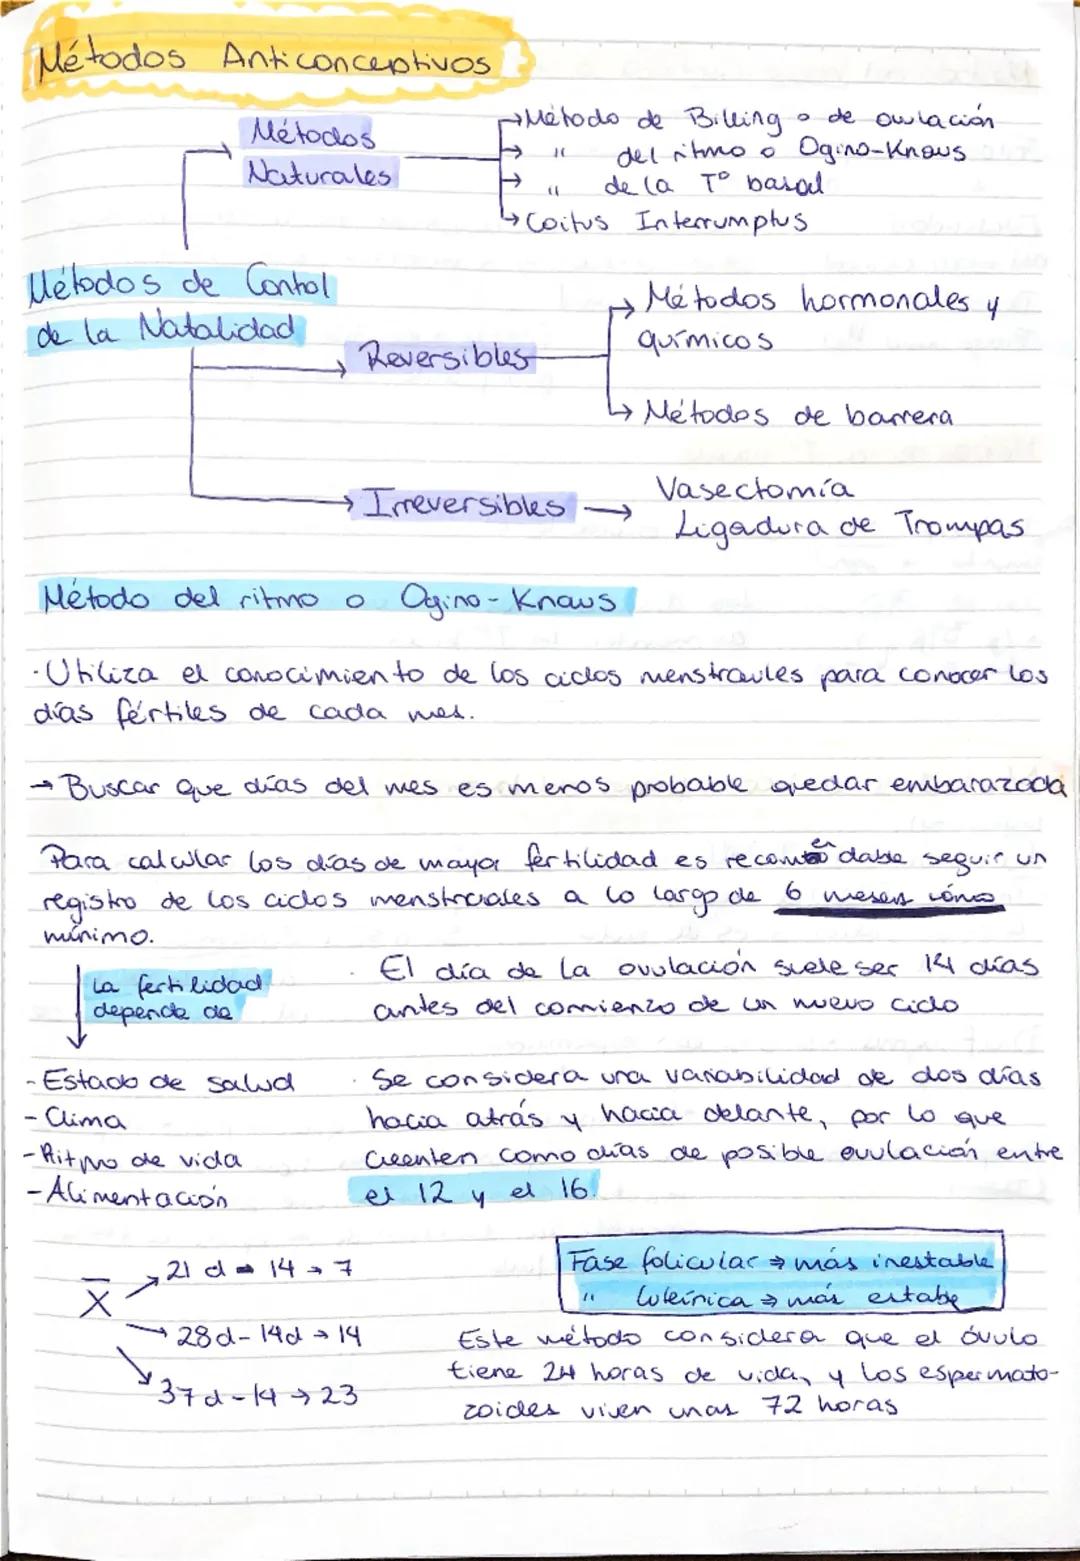 Métodos Anticonceptivos
Métodos
Naturales
→Método de Billing o de ovulación
→ " del ritmo o Ogino-Knaus
→ " de la Tº basal
→Coitus Interrumptus
Métodos de Contol
de la Natalidad
Reversibles
→ Métodos hormonales y
químicos
→ Métodos de barrera
Irreversibles →
Vasectomía
Ligadura de Trompas
Método del ritmo o Ogino-Knaus
·Utiliza el conocimiento de los ciclos menstraules para conocer los
días fértiles de cada mes.
→ Buscar que días del mes es menos probable quedar embarazada
Para calcular los días de mayor fertilidad es recomendable seguir un
registro de los ciclos menstruales a lo largo de 6 meses cómo
mínimo.
La fertilidad
depende de
- Estado de salud
- Clima
- Ritmo de vida
- Alimentación
· El día de la ovulación suele ser 14 días
antes del comienzo de un nuevo ciclo
· Se considera una variabilidad de dos días
hacia atrás y hacia delante, por lo que
cuenten como días de posible ovulación entre
el 12 y el 16.
X̅
→ 21 d - 14 → 7
→ 28d - 14d → 14
→ 37d - 14 → 23
Fase folicular → más inestable
" luteínica → más estabe
Este método considera que el óvulo
tiene 24 horas de vida, y los espermato-
zoides viven unas 72 horas